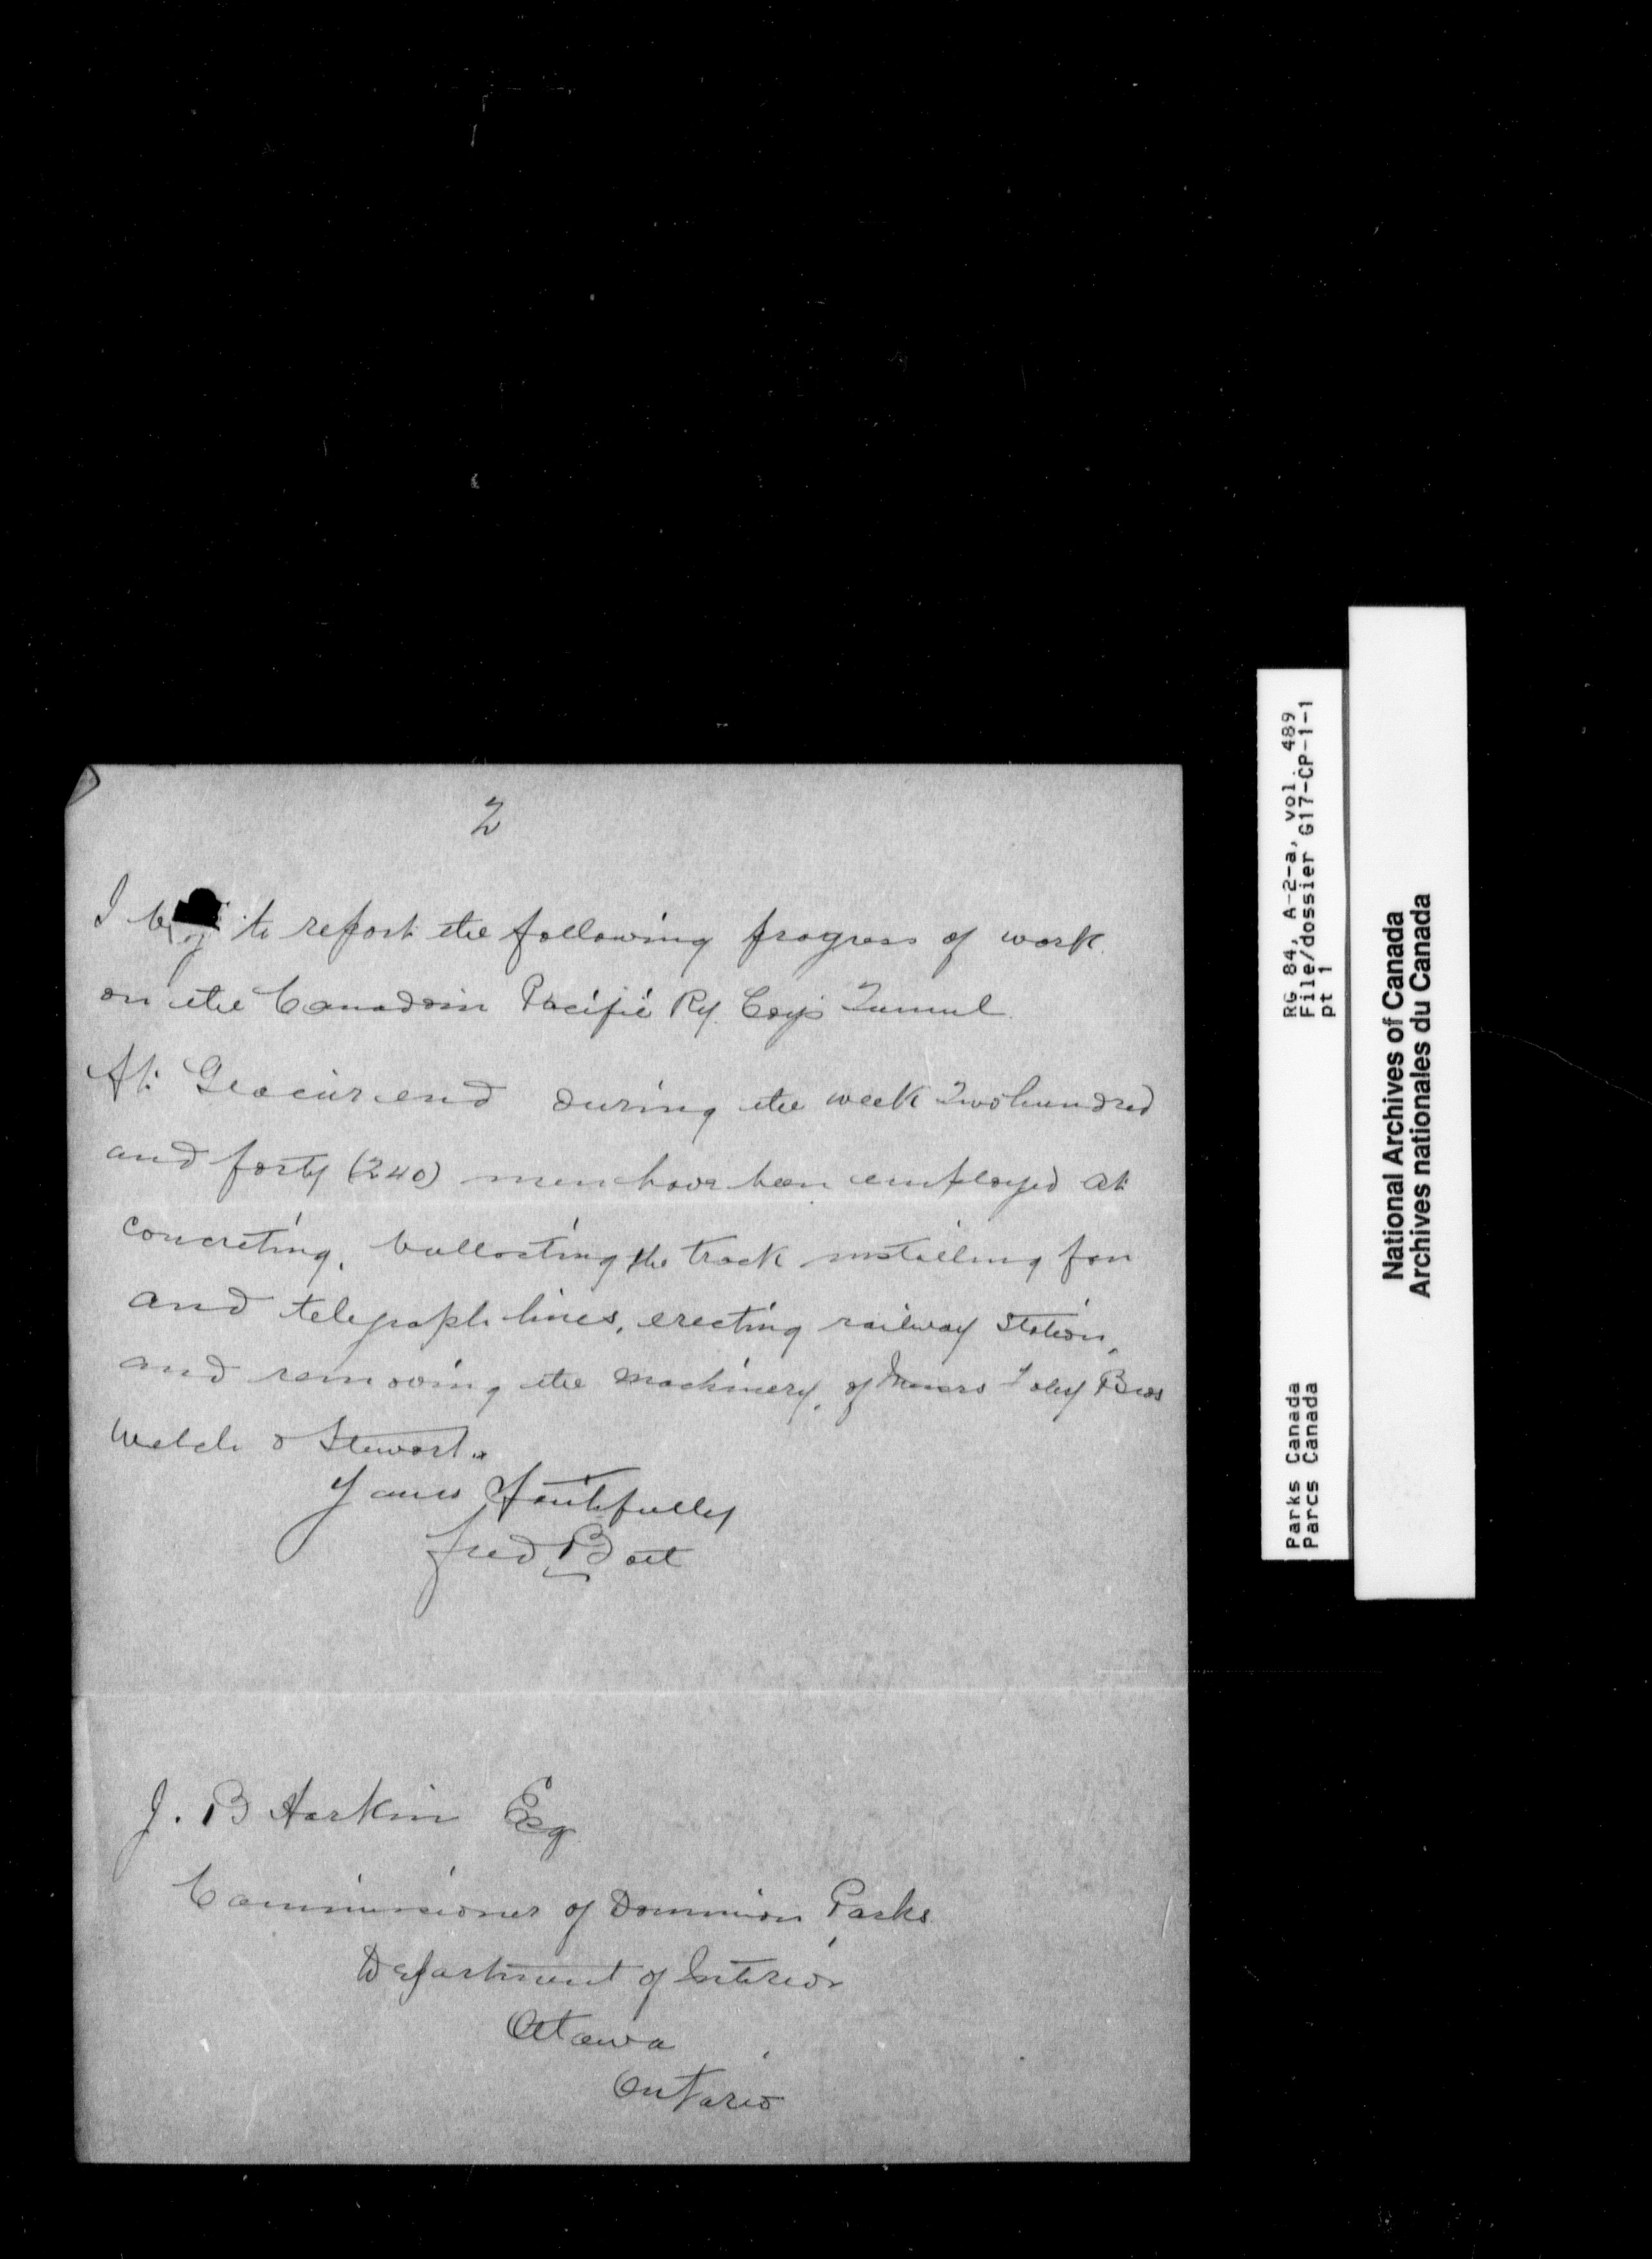 2
I beg to report the following progress of work
on the Canadain Pacific Ry. Coy's Tunnel.
At Glacier end during the week Two hundred
and forty (240) men have been employed at
concreting, ballasting the track installing fan
and telegraph lines, erecting railway station,
and removing the machinery, of Messrs Foley Bros
Welch & Stewart.
Yours Faithfully
Fred
J. B Harkin Esq
Commissioner of Dominion Parks
Department of Interior
Ottawa
Ontario
RG 84, A-2-a, vol. 489
File/dossier G17-CP-1-1
pt 1
Parks Canada
Parcs Canada
National Archives of Canada
Archives nationales du Canada